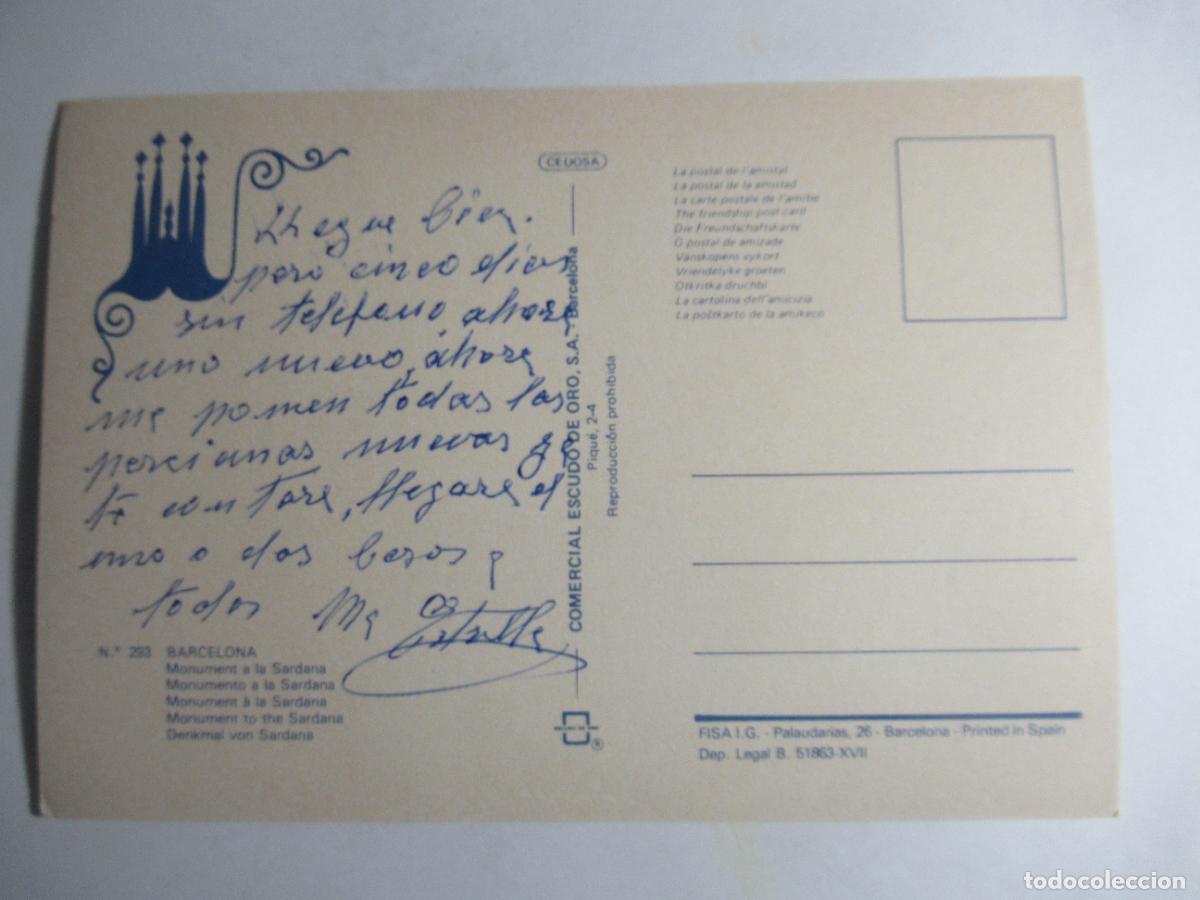 LLegue bien.
pero cinco dias
sin telefono, ahora
uno nuevo, ahora
me ponen todas las
persianas nuevas ya
te contare, llegare el
uno o dos besos
todos Mª Estrella
N.º 293 BARCELONA
Monument a la Sardana
Monumento a la Sardana
Monument à la Sardana
Monument to the Sardana
Denkmal von Sardana
CEDOSA
COMERCIAL ESCUDO DE ORO, S.A. - Barcelona
Piqué, 2-4
Reproducción prohibida
®
La postal de l'amistat
La postal de la amistad
La carte postale de l'amitie
The friendship post card
Die Freundschaftskarte
O postal de amizade
Vänskopens vykort
Vriendelyke groeten
Otkritka druchbi
La cartolina dell'amicizia
La poŝtkarto de la amikeco
FISA I.G. - Palaudarias, 26 - Barcelona - Printed in Spain
Dep. Legal B. 51863-XVII
todocoleccion